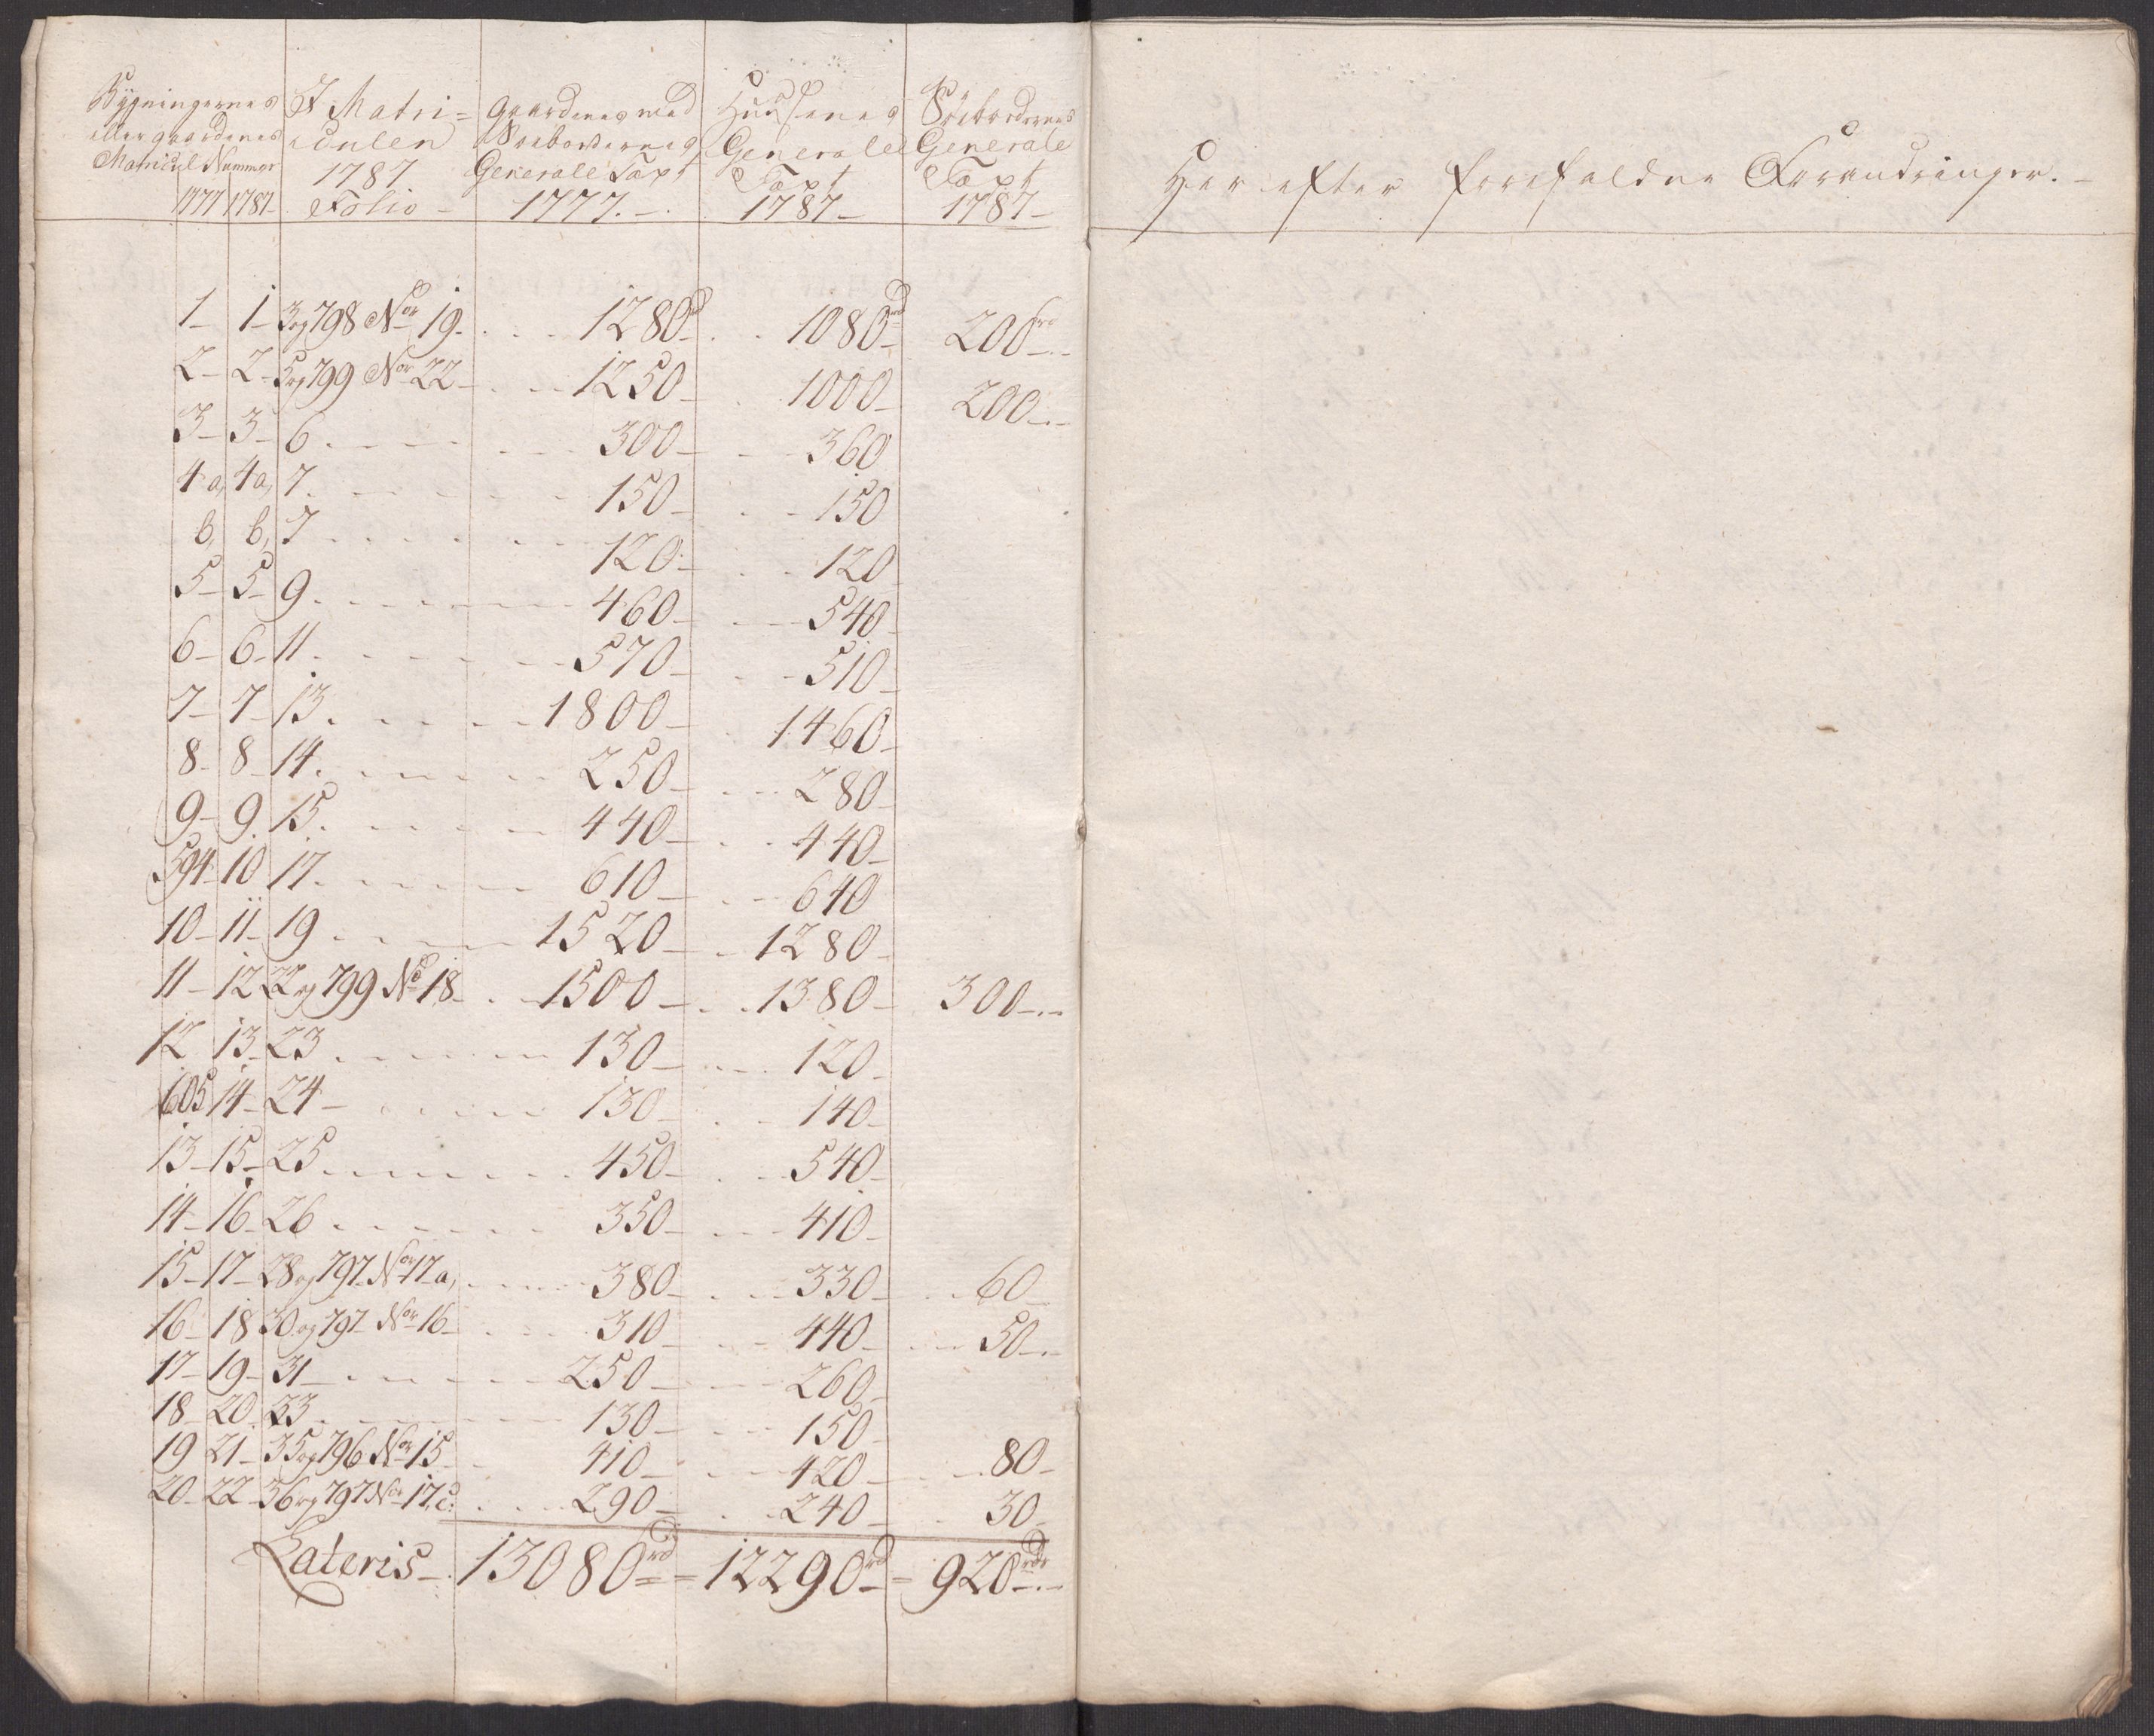 Bygningernes eller gaardenes Matricul Nummer
1777 1787
I Matriculen 1787 Folio
gaardenes med Søebodernes Generale Taxt 1777.
Huusenes Generale Taxt 1787
Søebodernes Generale Taxt 1787
Her efter forefaldne Forandringer.
1 1 3 og 798 Nor 19. 1280rd 1080rd 200rd
2 2 5 og 799 Nor 22 1250 1000 200
3 3 6 300 360
4a, 4a, 7 150 150
b, b, 7 120 120
5 5 9 460 540
6 6 11 570 510
7 7 13 1800 1460
8 8 14 250 280
9 9 15 440 440
594 10 17 610 640
10 11 19 1520 1280
11 12 22 og 799 No 18 1500 1380 300
12 13 23 130 120
605 14 24 130 140
13 15 25 450 540
14 16 26 350 410
15 17 28 og 797 Nor 17a, 380 330 60
16 18 30 og 797 Nor 16 310 440 50
17 19 31 250 260
18 20 33 130 150
19 21 35 og 796 Nor 15 410 420 80
20 22 36 og 797 Nor 17.c. 290 240 30
Lateris 13080rd 12290rd 920rdr